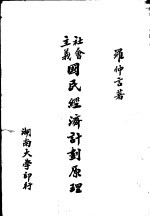 羅仲言著
社會
主義
國民經濟計劃原理
湖南大學印行